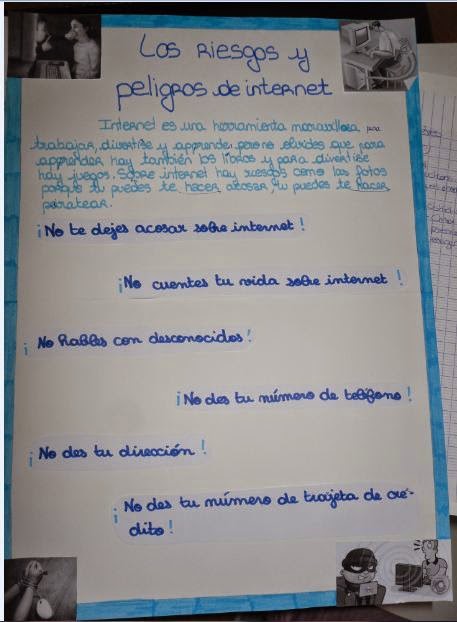 Los Riesgos y
peligros de internet
Internet es una herramienta maravillosa para
trabajar, divertirse y apprende pero no olvides que para
apprender hay también los libros y para divertirse
hay juegos. Sobre internet hay riesgos como las fotos
porque tu puedes te hacer acosar, tu puedes te hacer
piratear.
¡No te dejes acosar sobre internet!
¡No cuentes tu vida sobre internet!
¡No hables con desconocidos!
¡No des tu número de teléfono!
¡No des tu dirección!
¡No des tu número de trajeta de cré-
dito!